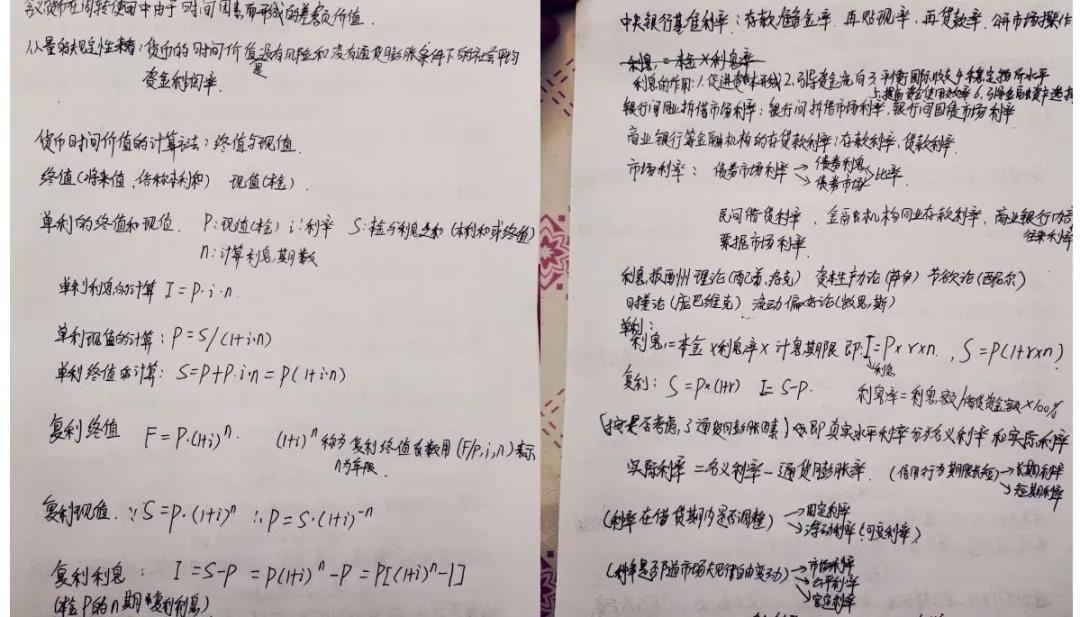 货币在周转使用中由于时间因素而形成的差额价值.
从量的规定性来看:货币的时间价值是没有风险和没有通货膨胀条件下的社会平均
资金利润率.
货币时间价值的计算方法:终值与现值.
终值(将来值、俗称本利和) 现值(本金).
单利的终值和现值. P:现值(本金) i:利率 S:本金与利息之和(本利和或终值)
n:计算利息期数
单利利息的计算 I=P·i·n.
单利现值的计算:P=S/(1+i·n)
单利终值的计算:S=P+P·i·n=P(1+i·n)
复利终值 F=P·(1+i)ⁿ. (1+i)ⁿ称为复利终值系数用(F/P,i,n)表示
n为年限
复利现值.∵S=P·(1+i)ⁿ ∴P=S·(1+i)⁻ⁿ
复利利息: I=S-P=P(1+i)ⁿ-P=P[(1+i)ⁿ-1]
(本金P的n期复利利息)
中央银行基准利率:存款准备金率.再贴现率,再贷款率.公开市场操作
利息=本金×利息率
利息的作用:1.促进资本形成2.引导资金流向3.平衡国际收支4.稳定物价水平
5.提高资金使用效率6.引导金融资产选择
银行间同业拆借市场利率:银行间拆借市场利率,银行间国债市场利率
商业银行等金融机构的存贷款利率:存款利率,贷款利率.
市场利率: 债券市场利率→债券利息
→债券市场>比率.
民间借贷利率、金融机构同业存款利率,商业银行内部
往来利率
票据市场利率.
利息报酬理论(配第,洛克) 资本生产力论(萨伊) 节欲论(西尼尔)
时差论(庞巴维克) 流动偏好论(凯恩斯)
单利:
利息=本金×利息率×计息期限 即:I=P×r×n. , S=P(1+r×n)
利息
复利:S=P×(1+r) I=S-P. 利息率=利息额/借贷资金额×100%
(按是否考虑了通货膨胀因素)即真实水平利率分为名义利率和实际利率
实际利率=名义利率-通货膨胀率. (信用行为期限长短)→长期利率
→短期利率
(利率在借贷期内是否调整)→固定利率
→浮动利率(可变利率)
(利率是否随市场规律自由变动)→市场利率
→公平利率
→官定利率